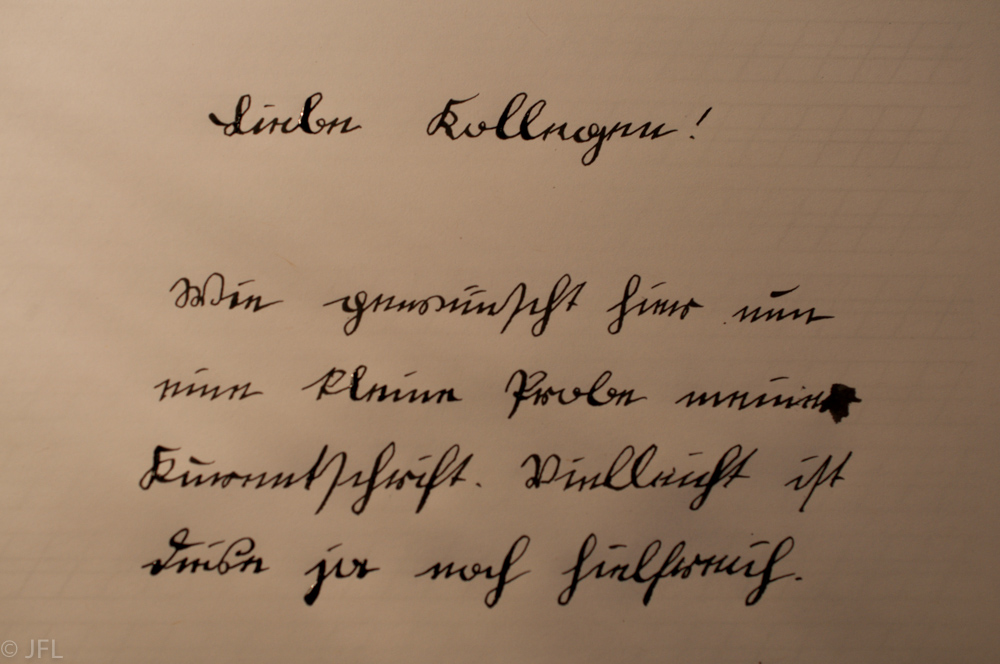 Liebe Kollegen!
Wie gewünscht hier nun
eine kleine Probe meiner
Kurentschrift. Vielleicht ist
diese ja noch hielfreich.
© JFL